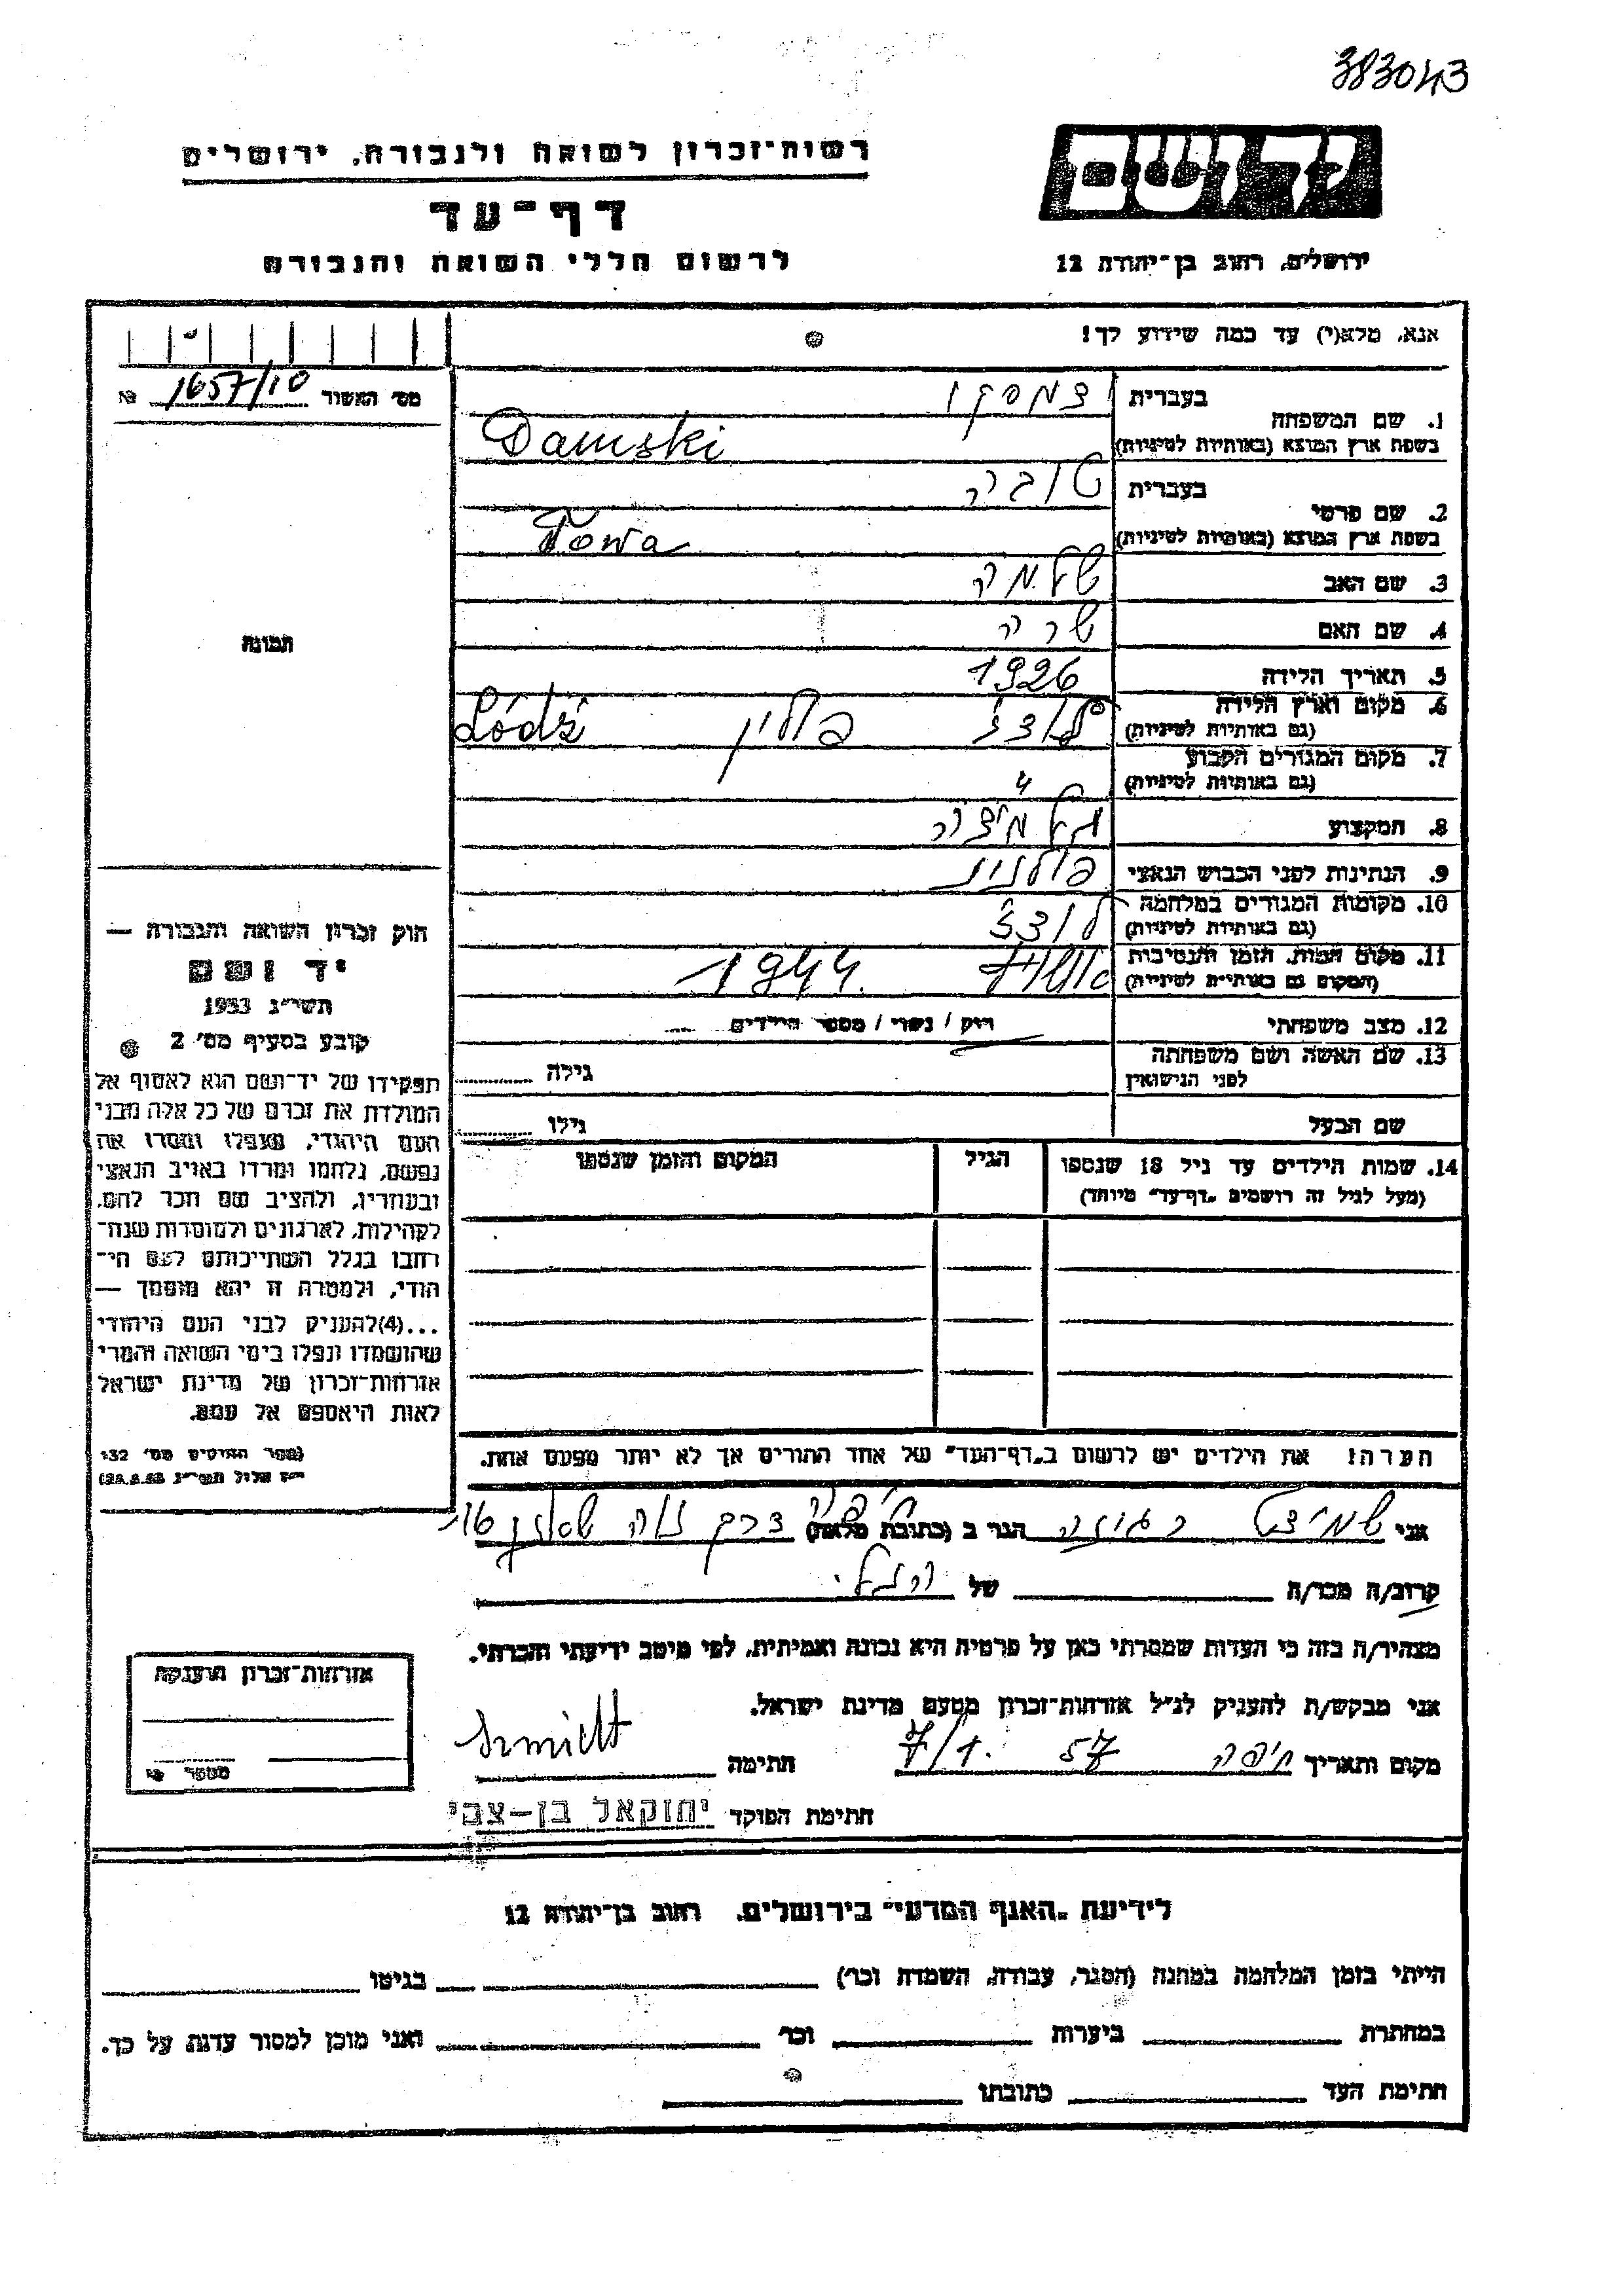 383043
יד ושם
רשות־זכרון לשואה ולגבורה, ירושלים
דף־עד
לרשום חללי השואה והגבורה
ירושלים, רחוב בן־יהודה 12
אנא, מלא(י) עד כמה שידוע לך!
מס׳ האשור 1657/10 №
1. שם המשפחה
בעברית דמסקי
בשפת ארץ המוצא (באותיות לטיניות) Damski
2. שם פרטי
בעברית טובה
בשפת ארץ המוצא (באותיות לטיניות) Towa
3. שם האב שלמה
4. שם האם שרה
5. תאריך הלידה 1926
6. מקום וארץ הלידה (גם באותיות לטיניות) לודז׳ פולין Łódź
7. מקום המגורים הקבוע (גם באותיות לטיניות) "
8. המקצוע תלמידה
9. הנתינות לפני הכבוש הנאצי פולנית
10. מקומות המגורים במלחמה (גם באותיות לטיניות) לודז׳
11. מקום המות, הזמן והנסיבות (המקום גם באותיות לטיניות) 1944.
12. מצב משפחתי רוק / נשוי / מספר הילדים
13. שם האשה ושם משפחתה לפני הנישואין גילה
שם הבעל גילו
14. שמות הילדים עד גיל 18 שנספו (מעל לגיל זה רושמים „דף־עד״ מיוחד)
הגיל
המקום והזמן שנספו
תמונה
חוק זכרון השואה והגבורה —
יד ושם
תשי״ג 1953
קובע בסעיף מס׳ 2
תפקידו של יד־ושם הוא לאסוף אל
המולדת את זכרם של כל אלה מבני
העם היהודי, שנפלו ומסרו את
נפשם, נלחמו ומרדו באויב הנאצי
ובעוזריו, ולהציב שם וזכר להם,
לקהילות, לארגונים ולמוסדות שנח־
רבו בגלל השתייכותם לעם הי־
הודי, ולמטרה זו יהא מוסמך —
...(4)להעניק לבני העם היהודי
שהושמדו ונפלו בימי השואה והמרי
אזרחות־זכרון של מדינת ישראל
לאות היאספם אל עמם.
(ספר החוקים מס׳ 132
הערה! את הילדים יש לרשום ב„דף־העד״ של אחד ההורים אך לא יותר מפעם אחת.
אני שמידט רגינה הגר ב (כתובת מלאה) חיפה דרך
קרוב/ה מכר/ה של
מצהיר/ה בזה כי העדות שמסרתי כאן על פרטיה היא נכונה ואמיתית, לפי מיטב ידיעתי והכרתי.
אני מבקש/ת להעניק לנ״ל אזרחות־זכרון מטעם מדינת ישראל.
מקום ותאריך חיפה 57 7/1. חתימה Szmidt
חתימת הפוקד יחזקאל בן-צבי
אזרחות־זכרון הוענקה
מספר
לידיעת „האגף המדעי״ בירושלים, רחוב בן־יהודה 12
הייתי בזמן המלחמה במחנה (הסגר, עבודה, השמדה וכו׳) בגיטו
במחתרת ביערות וכו׳ ואני מוכן למסור עדות על כך.
חתימת העד כתובתו